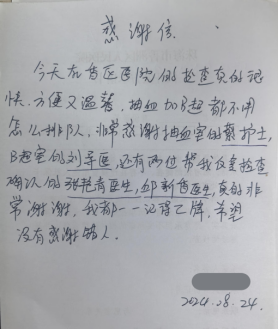 感谢信
今天在贵区医院的检查真的很
快、方便又温馨。抽血加B超都不用
怎么排队，非常感谢抽血室的蔡护士，
B超室的刘军医，还有两位帮我复查检查
确认的张艳青医生，邱新医生，真的非
常谢谢，我都一一记得工牌，希望
没有感谢错人。
2024.08.24.